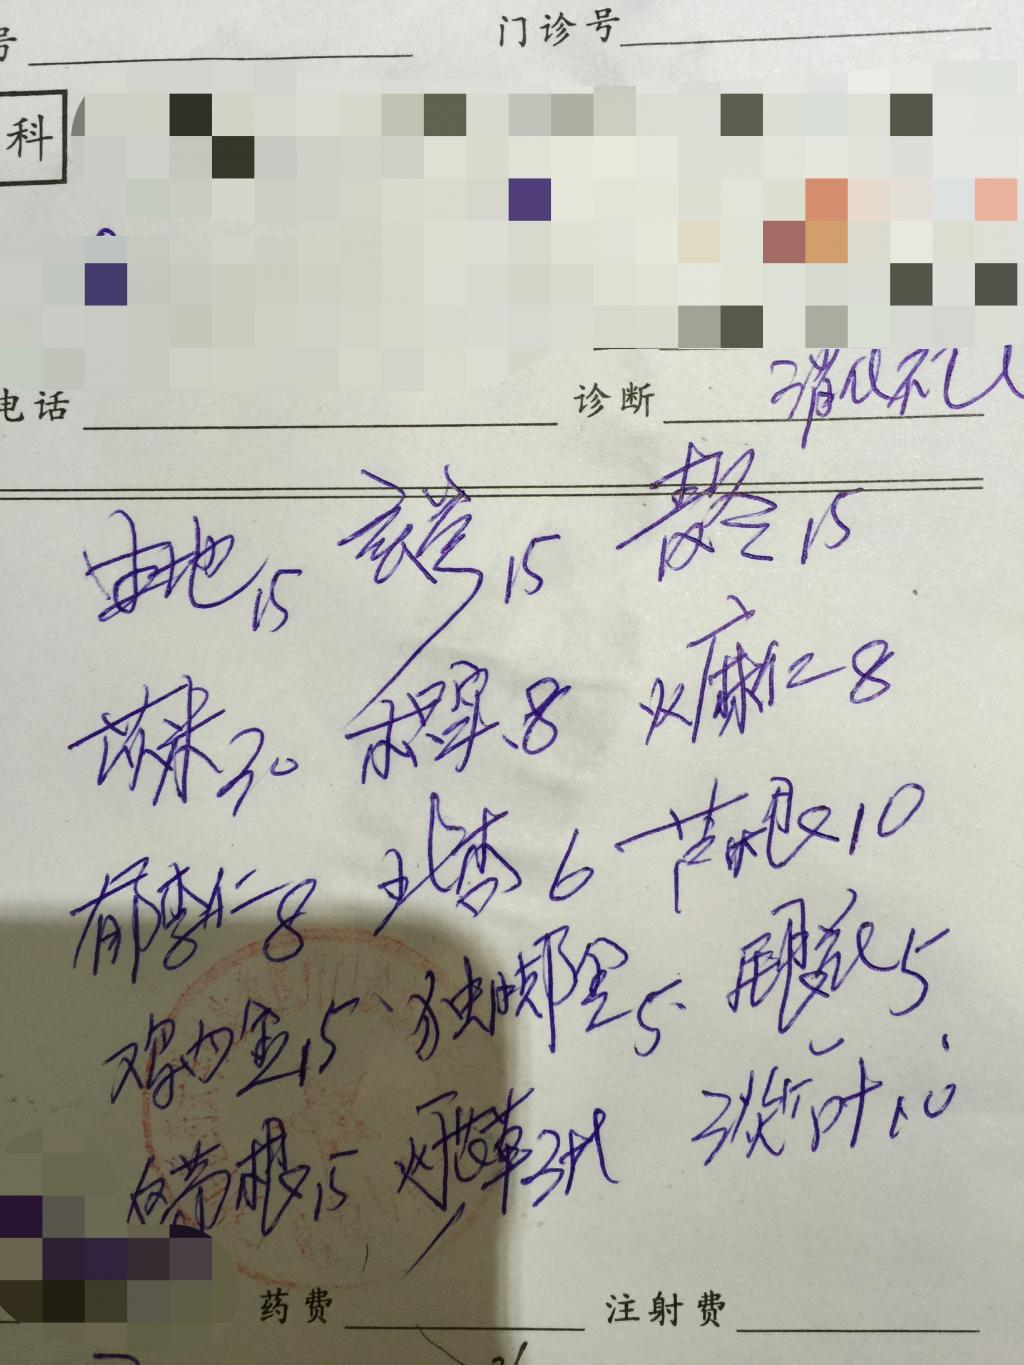 号 门诊号
科
电话 诊断 消化不
生地15 玄参15 麦冬15
苡米30 枳实8 火麻仁8
郁李仁8 北杏6 芦根10
鸡内金15 独脚金5 5
白茅根15 灯芯草3扎 淡竹叶10
药费 注射费